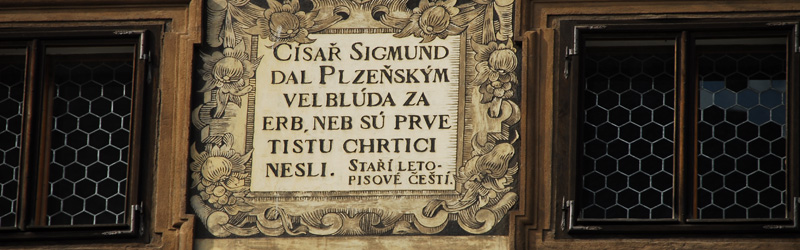 CÍSAŘ SIGMUND
DAL PLZEŇSKÝM
VELBLÚDA ZA
ERB, NEB SÚ PRVE
TISTU CHRTICI
NESLI. STAŘÍ LETO-
PISOVÉ ČEŠTÍ.